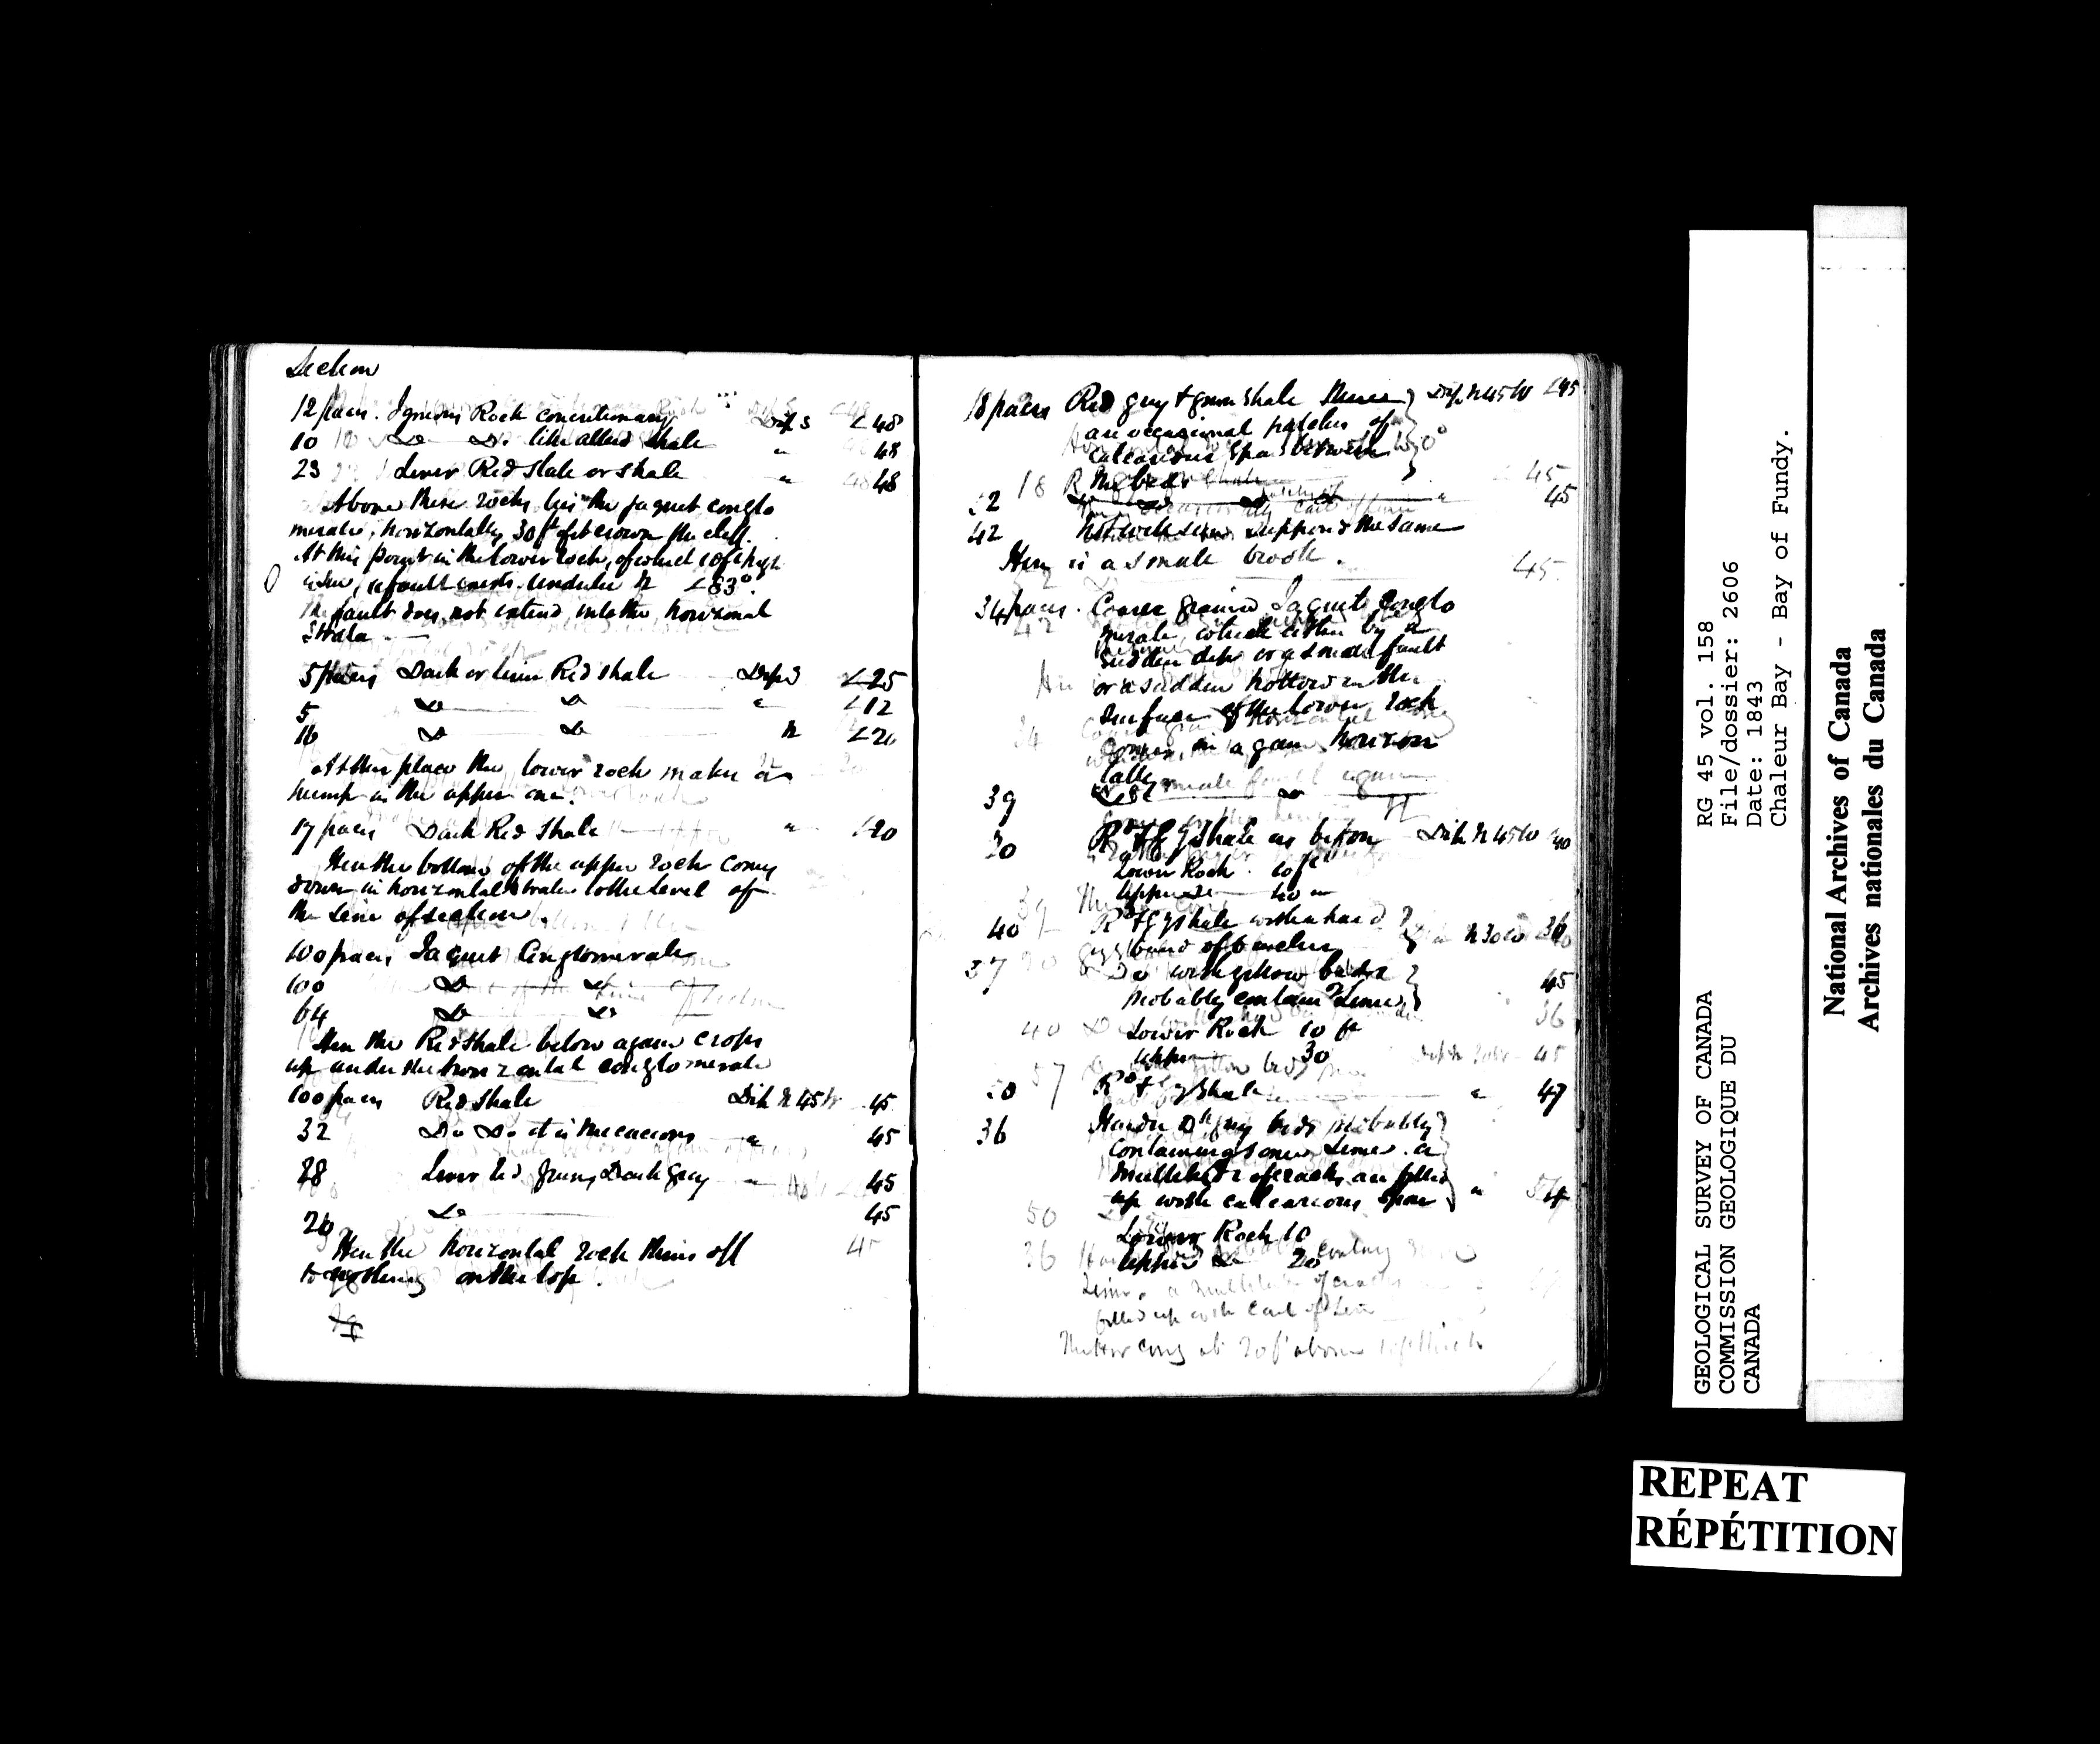 Section
12 paces. Igneous Rock concretionary Dip S <48
10 Do Do like altered shale " 48
23 Liver Red Slate or shale " 48
Above these rocks lies the Jaquet conglo
merate, horizontally 30 ft of it crown the cliff.
At this point in the lower rock, of which 10 ft high
is seen, a fault underlie N <83°.
The fault does not extend into the horizonal
Strata
5 paces Dark or liver Red shale Dip S <25
5 Do Do " <12
16 Do Do N <20
At this place the lower rock makes a
hump in the upper one.
17 paces Dark Red Shale " <20
Here the bottom of the upper rock comes
down in horizontal strata to the level of
the line of section.
100 paces Jaquet Conglomerate
100 Do Do
64 Do Do
Here the Red Shale below again crops
up under the horizontal conglomerate
100 paces Red Shale Dip N 45 W 45
32 Do Do it is micaceous " 45
28 Liver red green & Dark grey " 45
26 Do 45
Here the horizontal rock thins off
to nothing on the top.
18 paces Red grey & green shale there Dip N 45 W <45
are occasional patches of
calcareous spar between
the beds
12 Do Do " 45
42 not well seen supposed the same
Here is a small brook.
34 paces. Coarse grained Jaquet conglo
merate, which either by a
sudden dip or a small fault
or a sudden hollow in the
surface of the lower rock
comes in again horizon
tally
39 Do Do
20 Rd & Gy Shale as before Dip N 45 W 40
Lower Rock 10 ft
Upper Do 40 "
40 Rd & Gy shale with a hard
gy band of 6 inches N 30 W 36
37 Do with yellow beds
probably contain Lime 45
Lower Rock 10 ft
Upper 30
50 Rd & Gy Shale " 47
36 Harder Dk grey beds probably
containing some Lime. a
multitude of cracks are filled
up with calcareous spar "
Lower Rock 10
Upper Do 20
filled up with
GEOLOGICAL SURVEY OF CANADA
COMMISSION GEOLOGIQUE DU
CANADA
RG 45 vol. 158
File/dossier: 2606
Date: 1843
Chaleur Bay - Bay of Fundy.
National Archives of Canada
Archives nationales du Canada
REPEAT
RÉPÉTITION